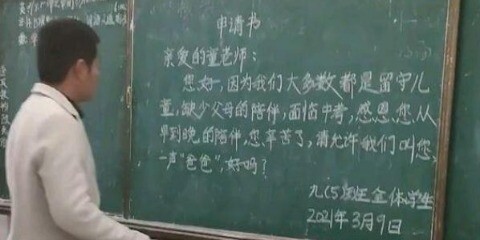 申请书
亲爱的董老师:
您好,因为我们大多数都是留守儿
童,缺少父母的陪伴,面临中考,感恩您从
早到晚的陪伴,您辛苦了,请允许我们叫您
一声“爸爸”,好吗?
九(5)班全体学生
2021年3月9日